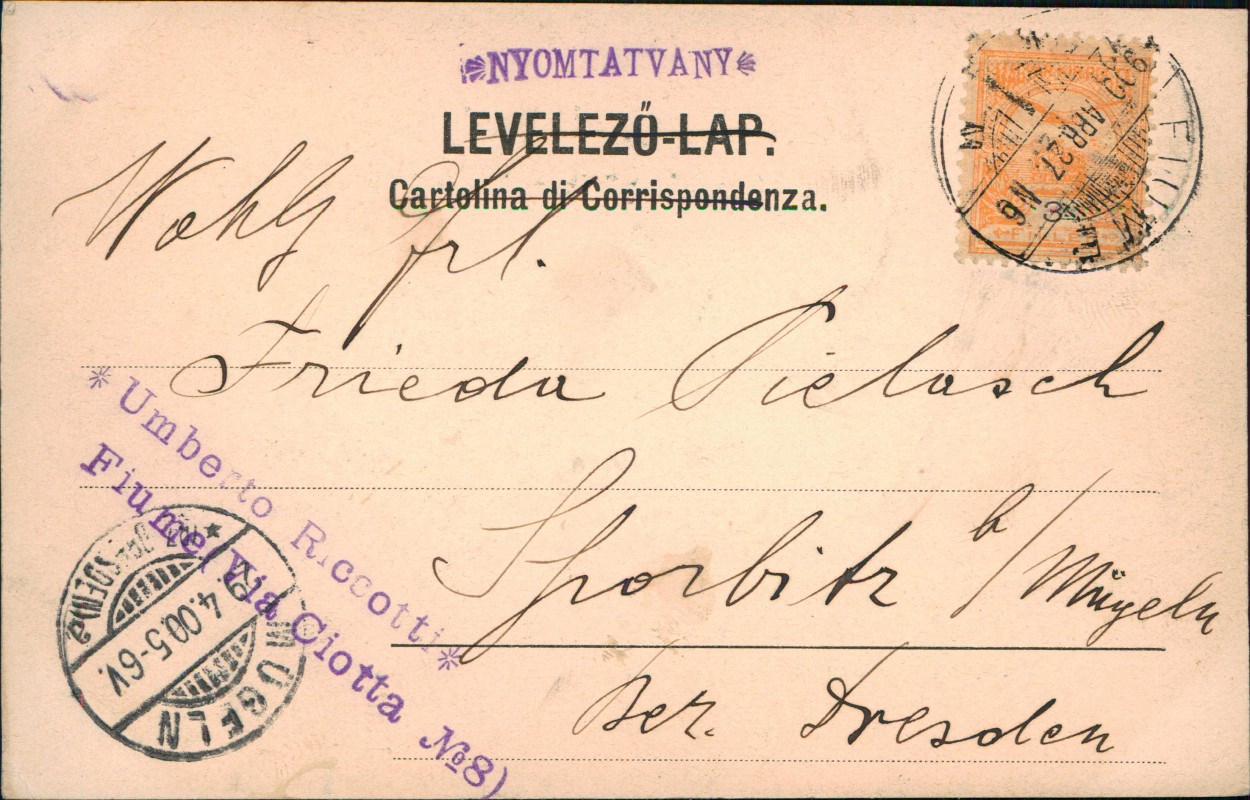 NYOMTATVANY
LEVELEZŐ-LAP.
Cartolina di Corrispondenza.
FIUME
900 APR. 27
N 6
3
Wohlg Frl.
Frieda Pielasch
Sporbitz b/ Mügeln
Bez. Dresden
* Umberto Riccotti *
Fiume (Via Ciotta №8)
MÜGELN
4.00.5-6V.